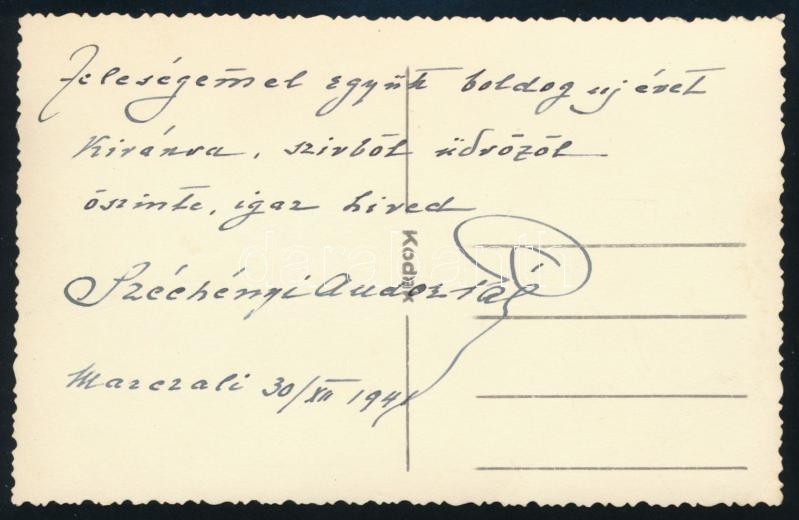 Feleségemel együtt boldog ujévet
Kivánva, szivből üdvözöl
őszinte, igaz hived
Kodak
darabanth
Széchényi Andor Pál
Marczali 30/XII 1941